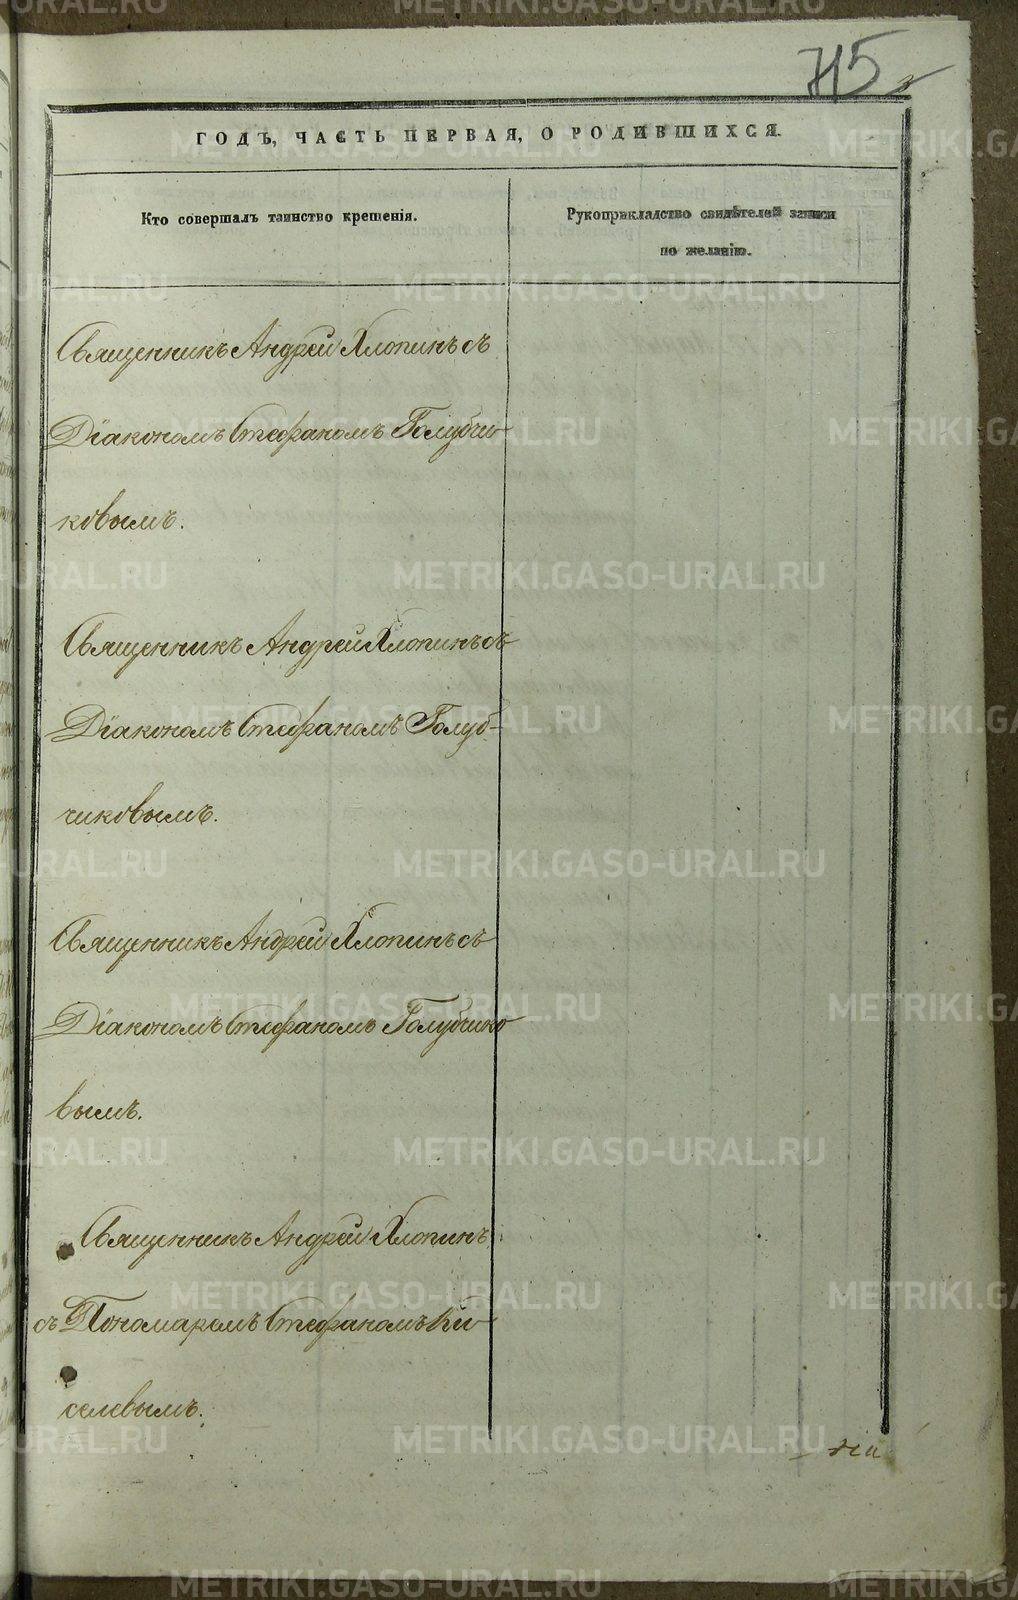 715
ГОДЪ, ЧАСТЬ ПЕРВАЯ, О РОДИВШИХСЯ.
Кто совершалъ таинство крещенія.
Рукоприкладство свидѣтелей записи
по желанію.
Священникъ Андрей Хлопинъ съ
Діакономъ Стефаномъ Голубчи-
ковымъ.
Священникъ Андрей Хлопинъ съ
Діакономъ Стефаномъ Голуб-
чиковымъ.
Священникъ Андрей Хлопинъ съ
Діакономъ Стефаномъ Голубчико
вымъ.
Священникъ Андрей Хлопинъ
съ Пономаремъ Стефаномъ Ки-
селевымъ.
METRIKI.GASO-URAL.RU